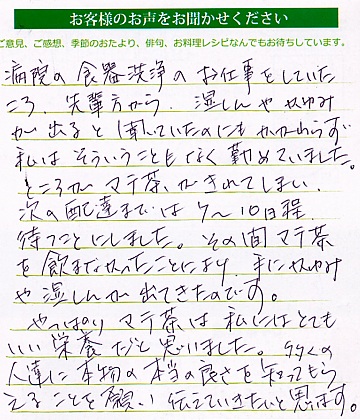 お客様のお声をお聞かせください
ご意見、ご感想、季節のおたより、俳句、お料理レシピなんでもお待ちしています。
病院の食器洗浄のお仕事をしていた
ころ、先輩方から、湿しんやかゆみ
が出ると聞いていたのにもかかわらず
私はそういうこともなく勤めていました。
ところがマテ茶がきれてしまい、
次の配達までは7〜10日程
待つことにしました。その間マテ茶
を飲まなかったことにより、手にかゆみ
や湿しんが出てきたのです。
やっぱりマテ茶は私にはとても
いい栄養だと思いました。多くの
人達に本物の本当の良さを知ってもら
えることを願い伝えていきたいと思います。